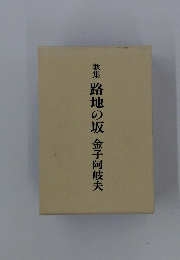 歌集 路地の坂 金子阿岐夫